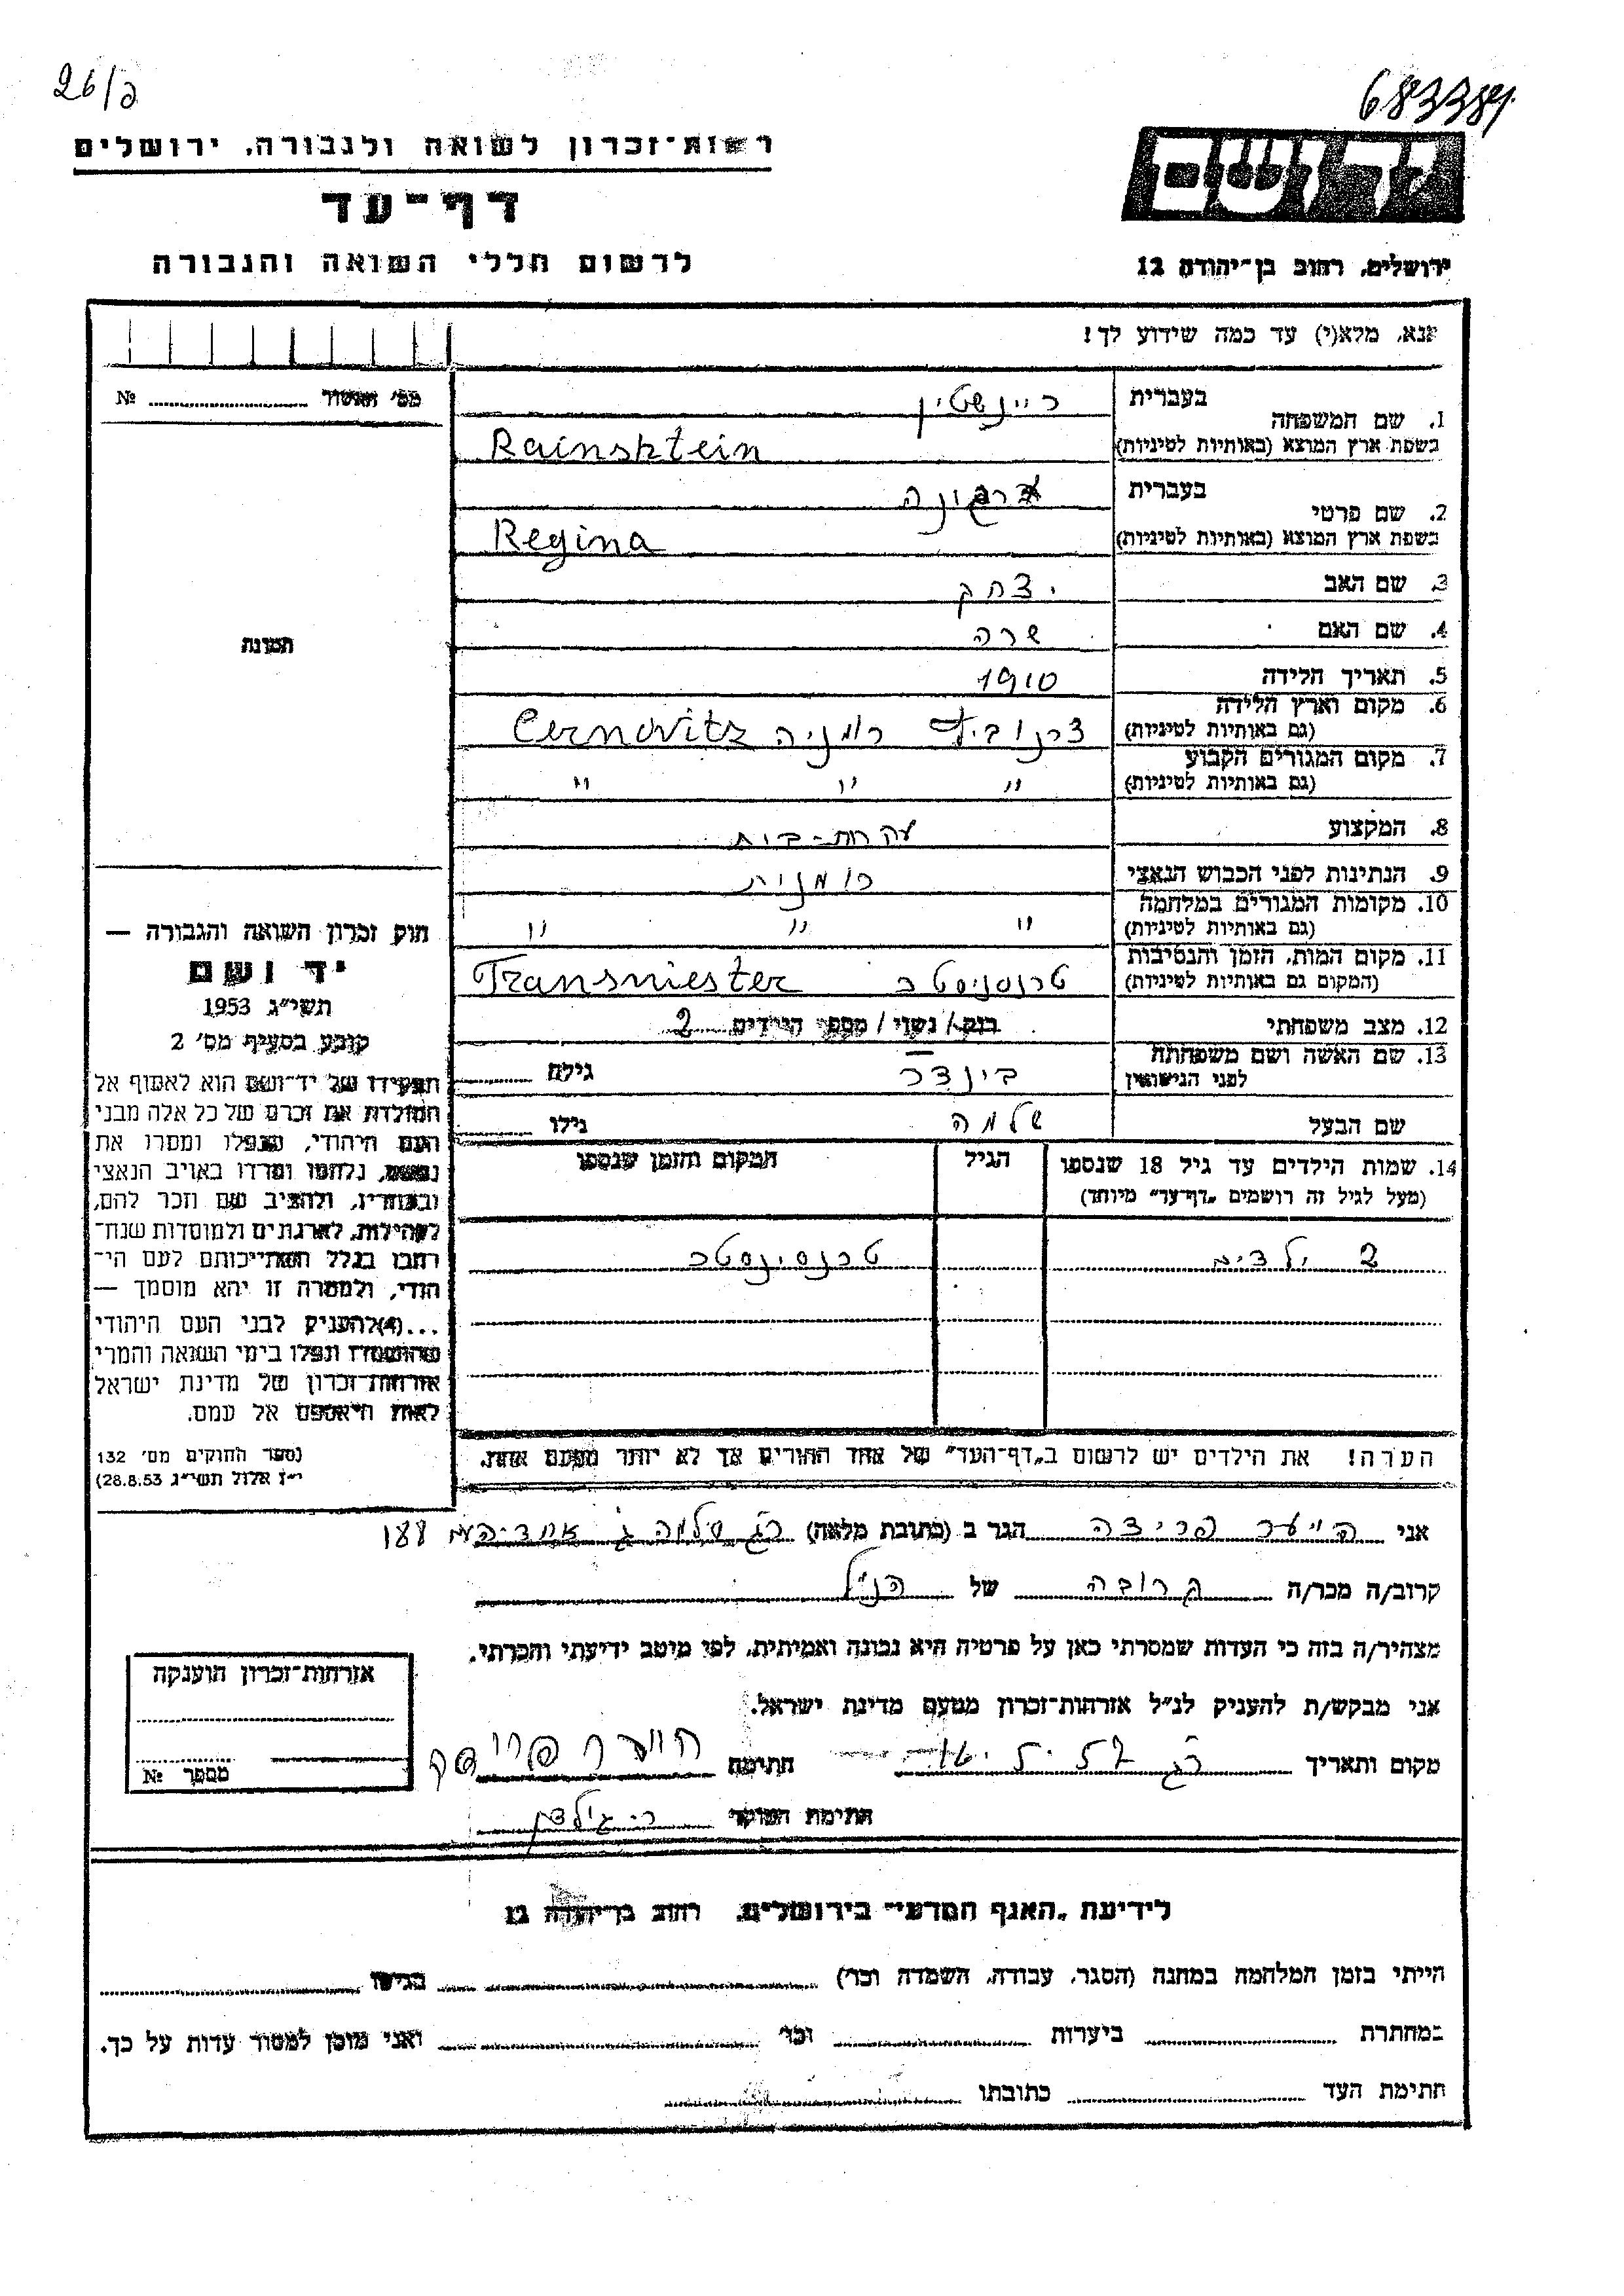 26/ב
683384
רשות־זכרון לשואה ולגבורה, ירושלים
יד ושם
דף־עד
לרשום חללי השואה והגבורה
ירושלים, רחוב בן־יהודה 12
אנא, מלא(י) עד כמה שידוע לך!
מס' האשור № 
1. שם המשפחה
בעברית ריינשטיין
בשפת ארץ המוצא (באותיות לטיניות) Rainshtein
2. שם פרטי
בעברית
בשפת ארץ המוצא (באותיות לטיניות) Regina
3. שם האב יצחק
4. שם האם שרה
תמונה
5. תאריך הלידה 1910
6. מקום וארץ הלידה
(גם באותיות לטיניות) צרנוביץ רומניה Cernovitz
7. מקום המגורים הקבוע
(גם באותיות לטיניות) " " "
8. המקצוע עקרת-בית
9. הנתינות לפני הכבוש הנאצי רומנית
10. מקומות המגורים במלחמה
(גם באותיות לטיניות) " " "
11. מקום המות, הזמן והנסיבות
(המקום גם באותיות לטיניות) טרנסניסטר Transniester
12. מצב משפחתי רוק/ נשוי/ מספר הילדים 2
13. שם האשה ושם משפחתה
לפני הנישואין בינדר גילה
שם הבעל שלמה גילו
14. שמות הילדים עד גיל 18 שנספו
(מעל לגיל זה רושמים "דף־עד" מיוחד)
הגיל
המקום והזמן שנספו
2 ילדים טרנסניסטר
הערה! את הילדים יש לרשום ב"דף־העד" של אחד ההורים אך לא יותר מפעם אחת.
חוק זכרון השואה והגבורה —
יד ושם
תשי"ג 1953
קובע בסעיף מס' 2
תפקידו של יד־ושם הוא לאסוף אל
המולדת את זכרם של כל אלה מבני
העם היהודי, שנפלו ומסרו את
נפשם, נלחמו ומרדו באויב הנאצי
ובעוזריו, ולהציב שם וזכר להם,
לקהילות, לארגונים ולמוסדות שנח־
רבו בגלל השתייכותם לעם הי־
הודי, ולמטרה זו יהא מוסמך —
...(4) להעניק לבני העם היהודי
שהושמדו ונפלו בימי השואה והמרי
אזרחות־זכרון של מדינת ישראל
לאות היאספם אל עמם.
(ספר החוקים מס' 132
י"ז אלול תשי"ג 28.8.53)
אני פרידה הגר ב (כתובת מלאה) אחד-העם
קרוב/ה מכר/ה קרובה של הנ"ל
מצהיר/ה בזה כי העדות שמסרתי כאן על פרטיה היא נכונה ואמיתית, לפי מיטב ידיעתי והכרתי.
אני מבקש/ת להעניק לנ"ל אזרחות־זכרון מטעם מדינת ישראל.
מקום ותאריך חתימה
חתימת הפוקד
אזרחות־זכרון הוענקה
מספר №
לידיעת "האגף המדעי" בירושלים, רחוב בן־יהודה 12
הייתי בזמן המלחמה במחנה (הסגר, עבודה, השמדה וכו') בגיטו
במחתרת ביערות וכו' ואני מוכן למסור עדות על כך.
חתימת העד כתובתו